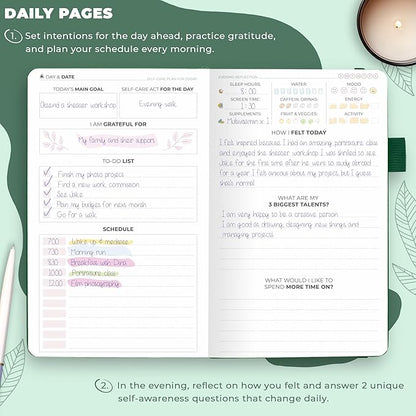 DAILY PAGES
1. Set intentions for the day ahead, practice gratitude,
and plan your schedule every morning.
DAY & DATE
SELF-CARE PLAN FOR TODAY
TODAY'S MAIN GOAL
SELF-CARE ACT FOR THE DAY
Attend a theater workshop
Evening walk
I AM GRATEFUL FOR
My family and their support
TO-DO LIST
Finish my photo project
Find a new work commission
See Jake
Plan my budget for next month
Go for a walk
SCHEDULE
7:00 Wake up & meditate
7:30 Morning run
8:30 Breakfast with Dina
10:00
12:00 Film photography
EVENING REFLECTION
SLEEP HOURS
WATER
MOOD
8:00
SCREEN TIME
CAFFEIN DRINKS
ENERGY
1:30
SUPPLEMENTS
FRUIT & VEGGIES
ACTIVITY
Multivitamin x 1
HOW I FELT TODAY
I felt inspired because I had an amazing class
and enjoyed the theater workshop. I was thrilled to see
Jake for the first time after he went to study abroad
for a year. I felt anxious about my project, but I guess
that's normal.
WHAT ARE MY
3 BIGGEST TALENTS?
I am very happy to be a creative person.
I am good at drawing, designing new things and
managing projects.
WHAT WOULD I LIKE TO
SPEND MORE TIME ON?
2. In the evening, reflect on how you felt and answer 2 unique
self-awareness questions that change daily.